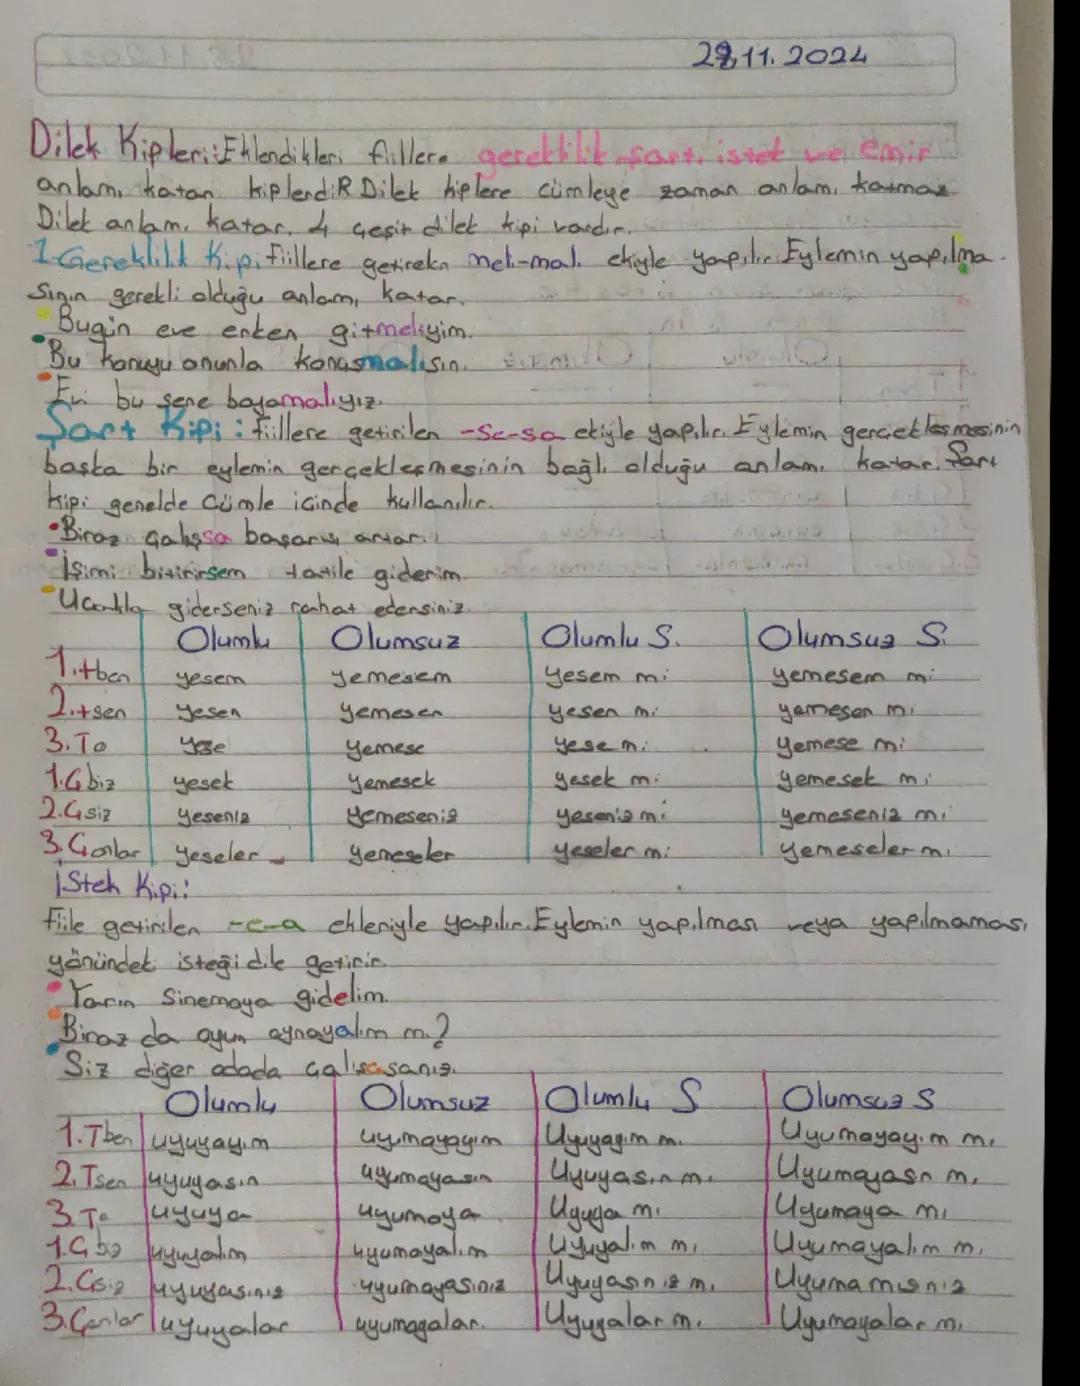 28.11.2024
Dilek Kipleri: Eklendikleri fiillere gereklilik, şart, istek ve emir
anlamı katan kiplerdiR Dilek kiplere cümleye zaman anlamı katmaz
Dilek anlamı katar. 4 çeşit dilek kipi vardır.
1-Gereklilik Kipi fiillere getirekn meli-malı ekiyle yapılır. Eylemin yapılma
sının gerekli olduğu anlamı katar.
Bugün eve erken gitmeliyim.
Bu konuyu onunla konuşmalısın.
Evi bu sene boyamalıyız.
Şart Kipi: fiillere getirilen -se-sa ekiyle yapılır. Eylemin gerçekleşmesinin
başka bir eylemin gerçekleşmesinin bağlı olduğu anlamı katar. Şart
kipi genelde cümle içinde kullanılır.
Biraz çalışsa başarış artar.
İşimi bitirirsem tatile giderim.
Uçakla giderseniz rahat edersiniz.
Olumlu Olumsuz Olumlu S. Olumsuz S.
1.tben yesem yemesem yesem mi yemesem mi
2.tsen yesen yemesen yesen mi yemesen mi
3.To yese yemese yese mi yemese mi
1.Gbiz yesek yemesek yesek mi yemesek mi
2.Gsiz yeseniz yemeseniz yeseniz mi yemeseniz mi
3.Gonlar yeseler yemeseler yeseler mi yemeseler mi
İStek Kipi:
fiile getirilen -e-a ekleriyle yapılır. Eylemin yapılması veya yapılmaması
yönündeki isteği dile getirir.
Yarın Sinemaya gidelim.
Biraz da oyun oynayalım mı?
Siz diğer odada çalışasanız.
Olumlu Olumsuz Olumlu S Olumsuz S
1.Tben uyuyayım uyumayayım Uyuyayım mı Uyumayayım mı
2.Tsen uyuyasın uyumayasın Uyuyasın mı Uyumayasn mı
3.To uyuya uyumaya Uyuya mı Uyumaya mı
1.G biz uyuyalım uyumayalım Uyuyalım mı Uyumayalım mı
2.Gsiz uyuyasınız uyumayasınız Uyuyasınız mı
3.Gonlar uyuyalar uyumayalar. Uyuyalar mı Uyumayalar mı